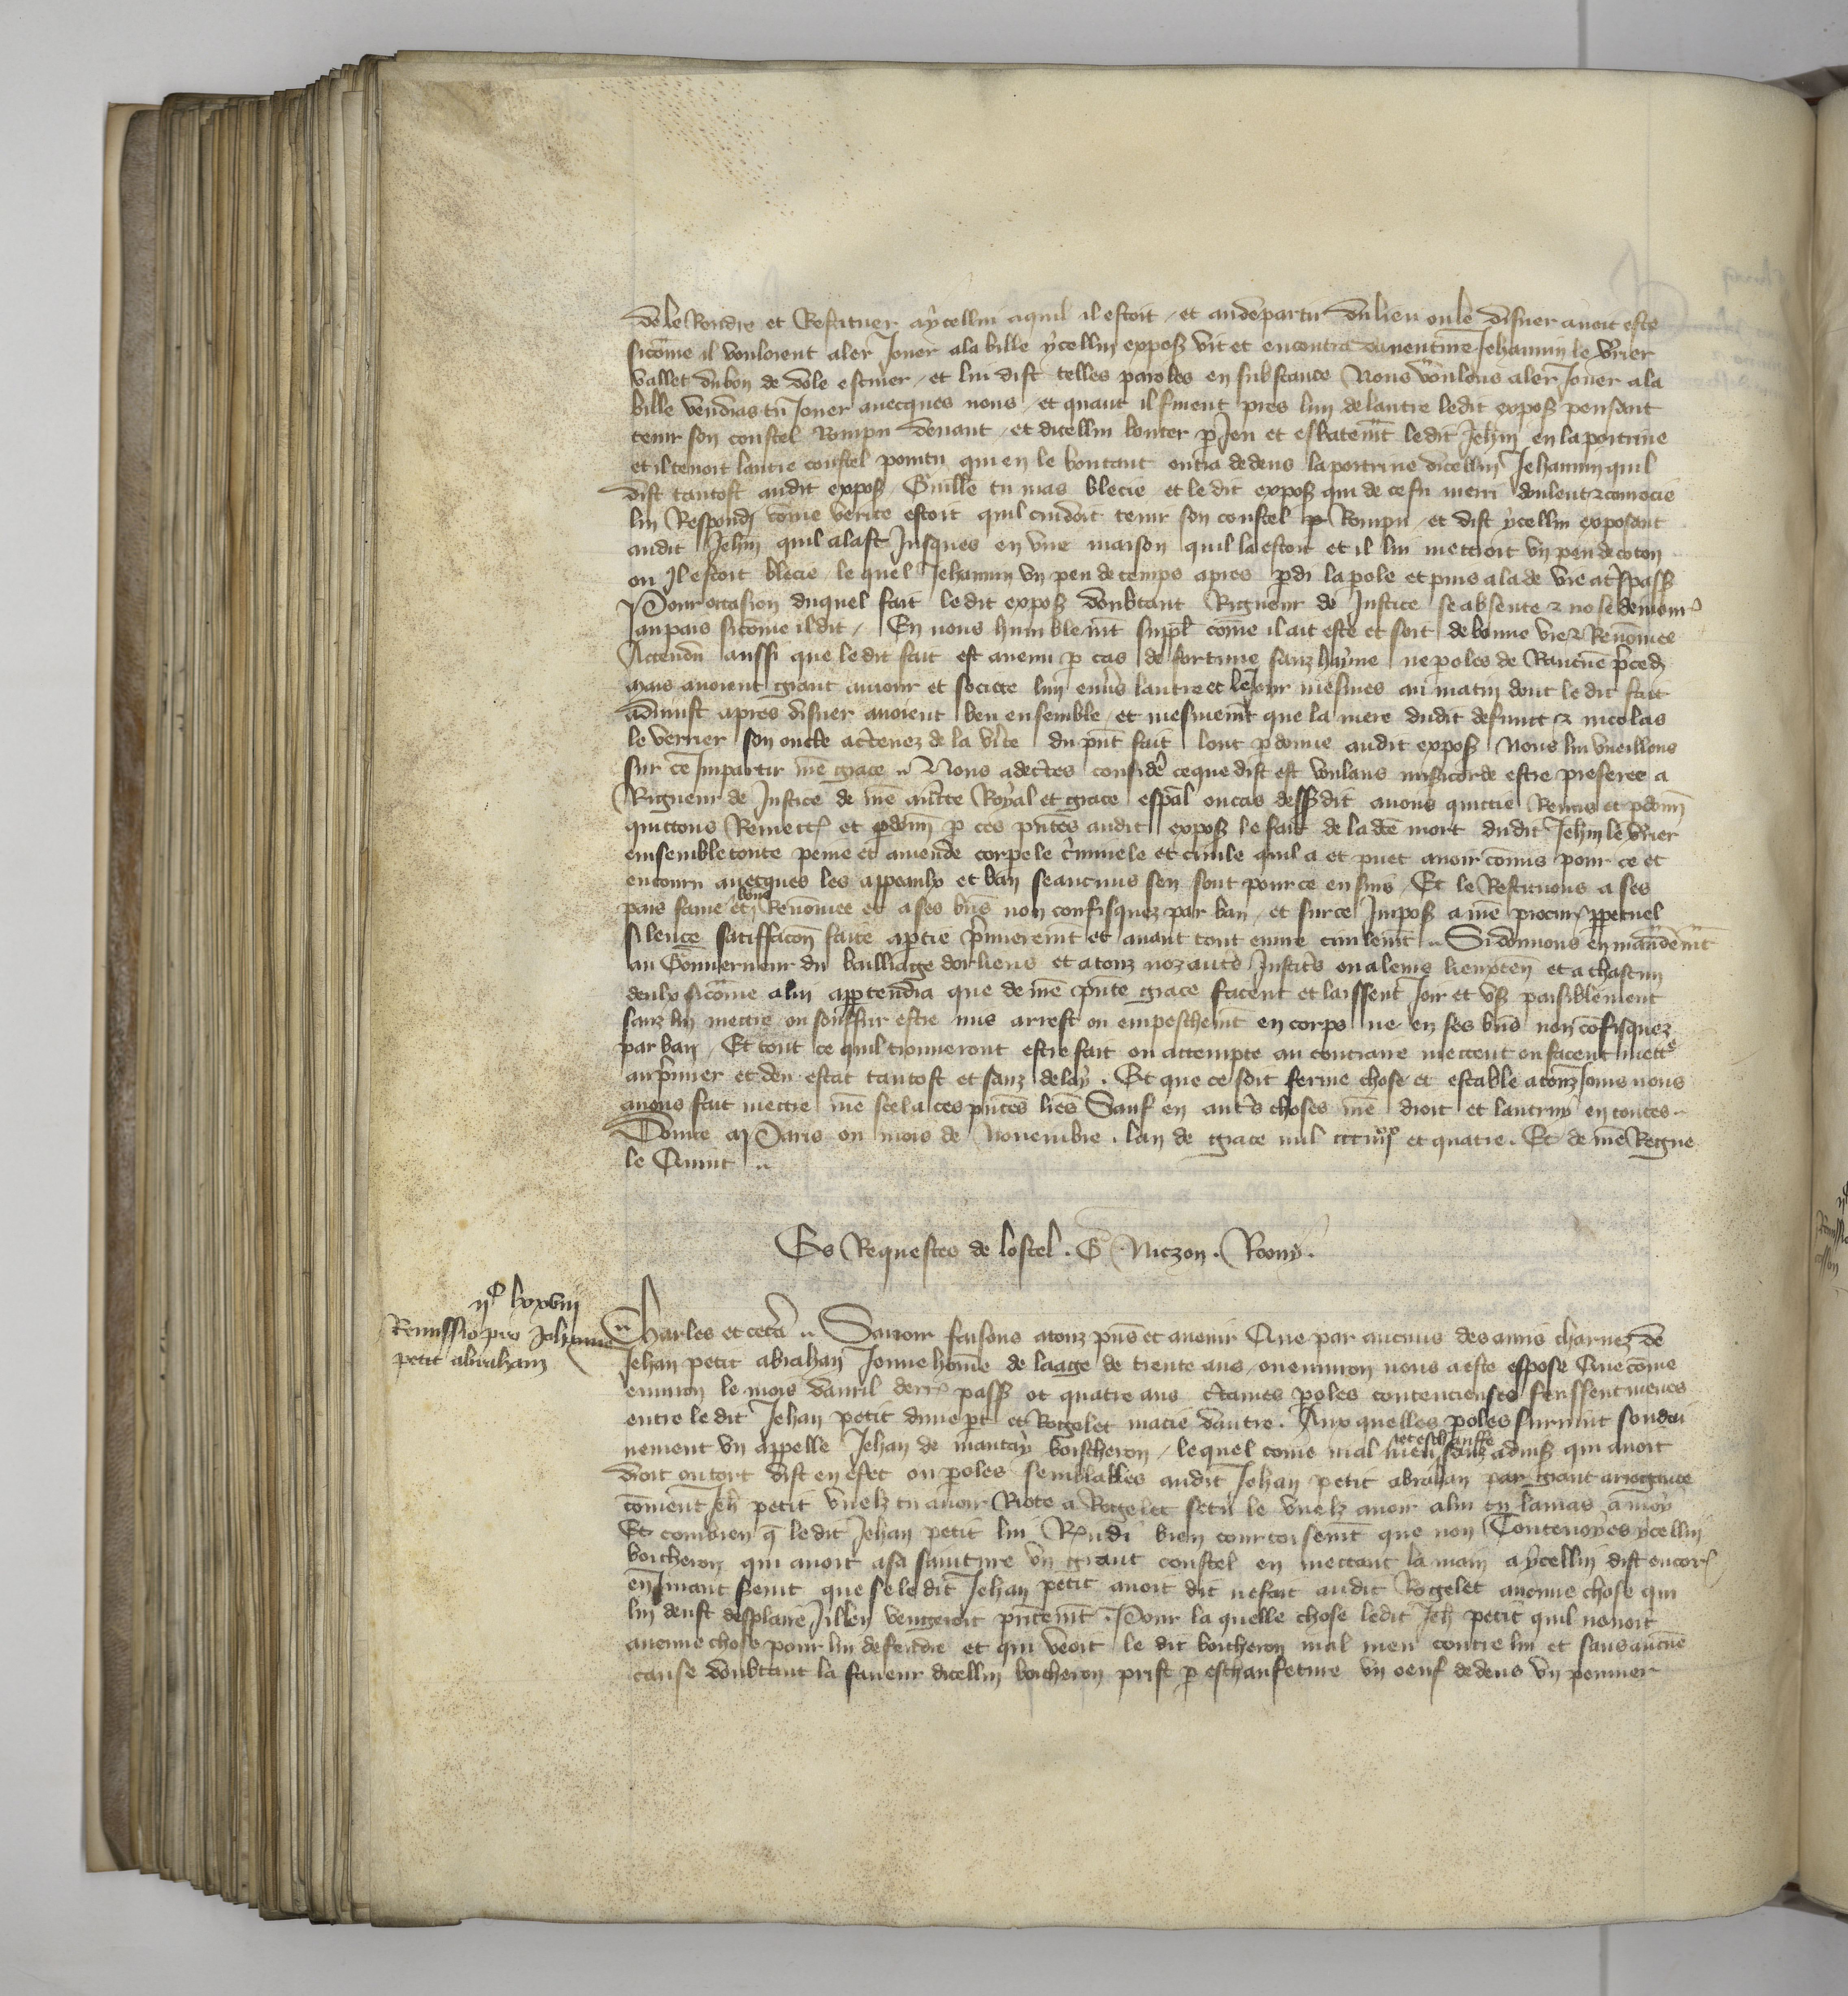 de le Rendre et Restituer a ycellui a quil il estoit / et au departir du lieu ou le disner avoit este
sicōme il vouloient aler Jouer a la bille ycellui exposß vit et encontra Jehannin le vrrier
vallet dubon de dole escuier / et lui dist telles paroles en substance Nous voulons aler Jouer a la
bille vendras tu Jouer avecques nous / et quant il furent pres lun de lautre ledit exposß pensant
tenir son coustel Rompu devant / et dicellui bouter p Jeu et esbatemt ledit Jehin en la poitrine
et il tenoit lautre coustel pointu qui en le boutant entra dedens la poitrine dicellui Jehannin quil
dist tantost audit exposß Guille tu mas blecie et le dit exposß qui de ce fu merri doulent & couroucie
lui Respondi cōme verite estoit quil cuidoit tenir son coustel Rompu / et dist ycellui exposant
audit Jehin quil alast Jusques en une maison quil la estoit et il lui mettroit un peu de coton
ou Il estoit blecie le quel Jehannin un peu de temps apres pdi la pole et puis ala de vie a tspassß
Pour occasion duquel fait ledit exposß doubtant Rigueur de Justice se absente & no se demour
au pais sicōme il dit / En nous humblemt suppl cōme il ait este et soit de bonne vie & Renōmee
Attendu aussi que le dit fait est avenu p cas de fortune sanz hayne ne poles de Rancune pced
mais avoient grant amour et societe lun envs lautre et le Jour mesmes au matin dont le dit fait
advinst apres disner avoient beu ensemble / et mesmemt que la mere dudit defunct & nicolas
le verrier son oncle actenez de la vite du pnt fait lont pdonne audit exposß Nous lui vueillons
sur ce Impartir nre grace .. Nous adectes conside ce que dist est voulans misicorde estre preferee a
Rigueur de Justice de nre aucte Royal et grace espal ou cas dessßdit avons quictie Remis et pdonn
quictons Remectt et pdonn p ces pntes audit exposß le fait de la dce mort dudit Jehin le vrier
ensemble toute peine et amende corpele cminele et civile quil a et puet avoir cōmis pour ce et
encouru avecques les appeaulx et ban se aucuns sen sont pour ce ensuis / Et le Restituons a ses
pais fame et bone Renōmee et a ses bns non confisquez par ban / et sur ce Imposß a nre procur ppetuel
silence satiffacon faite aptie pmieremt et avant tout euvre civilemt .. Si donnons en mandemt
au Gouverneur du bailliage dorliens et a touz noz autes Justices ou a leurs lieuxten et a chascun
deulx sicōme a lui appartendra que de nre pnte grace facent et laissent Joir et usß paisiblement
sanz lui mectre ou souffrir estre mis arrest ou empeschemt en corps ne en ses bns non cōfisquez
par ban / Et tout ce quil trouveront estre fait ou actempte au contraire mectent ou facent mett
au pmier et deu estat tantost et sanz delay . Et que ce soit ferme chose et estable a touz Jours nous
avons fait mectre nre scel a ces pntes lres Sauf en autes choses nre droit et lautruy en toutes
Donne a Paris ou mois de Novembre . lan de grace mil ccc iiiixx et quatre . Et de nre Regne
le Quint ..
Es Requestes de lostel . G . Niczon . Rony .
iic lxxviii
Remissio pro Johanne
petit abraham
Charles et cetera .. Savoir faisons a touz pns et avenir Que par aucuns des amis charnez de
Jehan petit abrahan Jeune hōme de laage de trente ans ou environ nous a este expose Que cōme
environ le mois davril derr passß ot quatre ans ctaines poles contencieuses feussent meues
entre le dit Jehan petit dune pt et Rogelet macie dautre . Aux quelles poles survint soudai
nement un appelle Jehan de mantay boscheron / lequel cōme mal meu et eschauffe sanz advisß qui avoit
droit ou tort dist en efet ou poles semblables audit Jehan petit abrahan par grant arrogance
cōment Jeh petit vuelz tu avoir Riote a Rogelet se tu le vuelz avoir a lui tu lauras a moy
Et combien q ledit Jehan petit lui Rndi bien courtoisemt que non Toutevoyes ycellui
boicheron qui avoit a sa sainture un grant coustel en mectant la main a ycellui dist encor
en Jurant fermt que se le dit Jehan petit avoit dit ne fait audit Rogelet aucune chose qui
lui deust desplaire Il len vengeroit pntemt . Pour la quelle chose ledit Jeh petit quil navoit
aucune chose pour lui defendre et qui veoit le dit boicheron mal meu contre lui et sans aucune
cause doubtant la fureur dicellui boicheron prist p eschaufeture un oeuf dedens un pennier